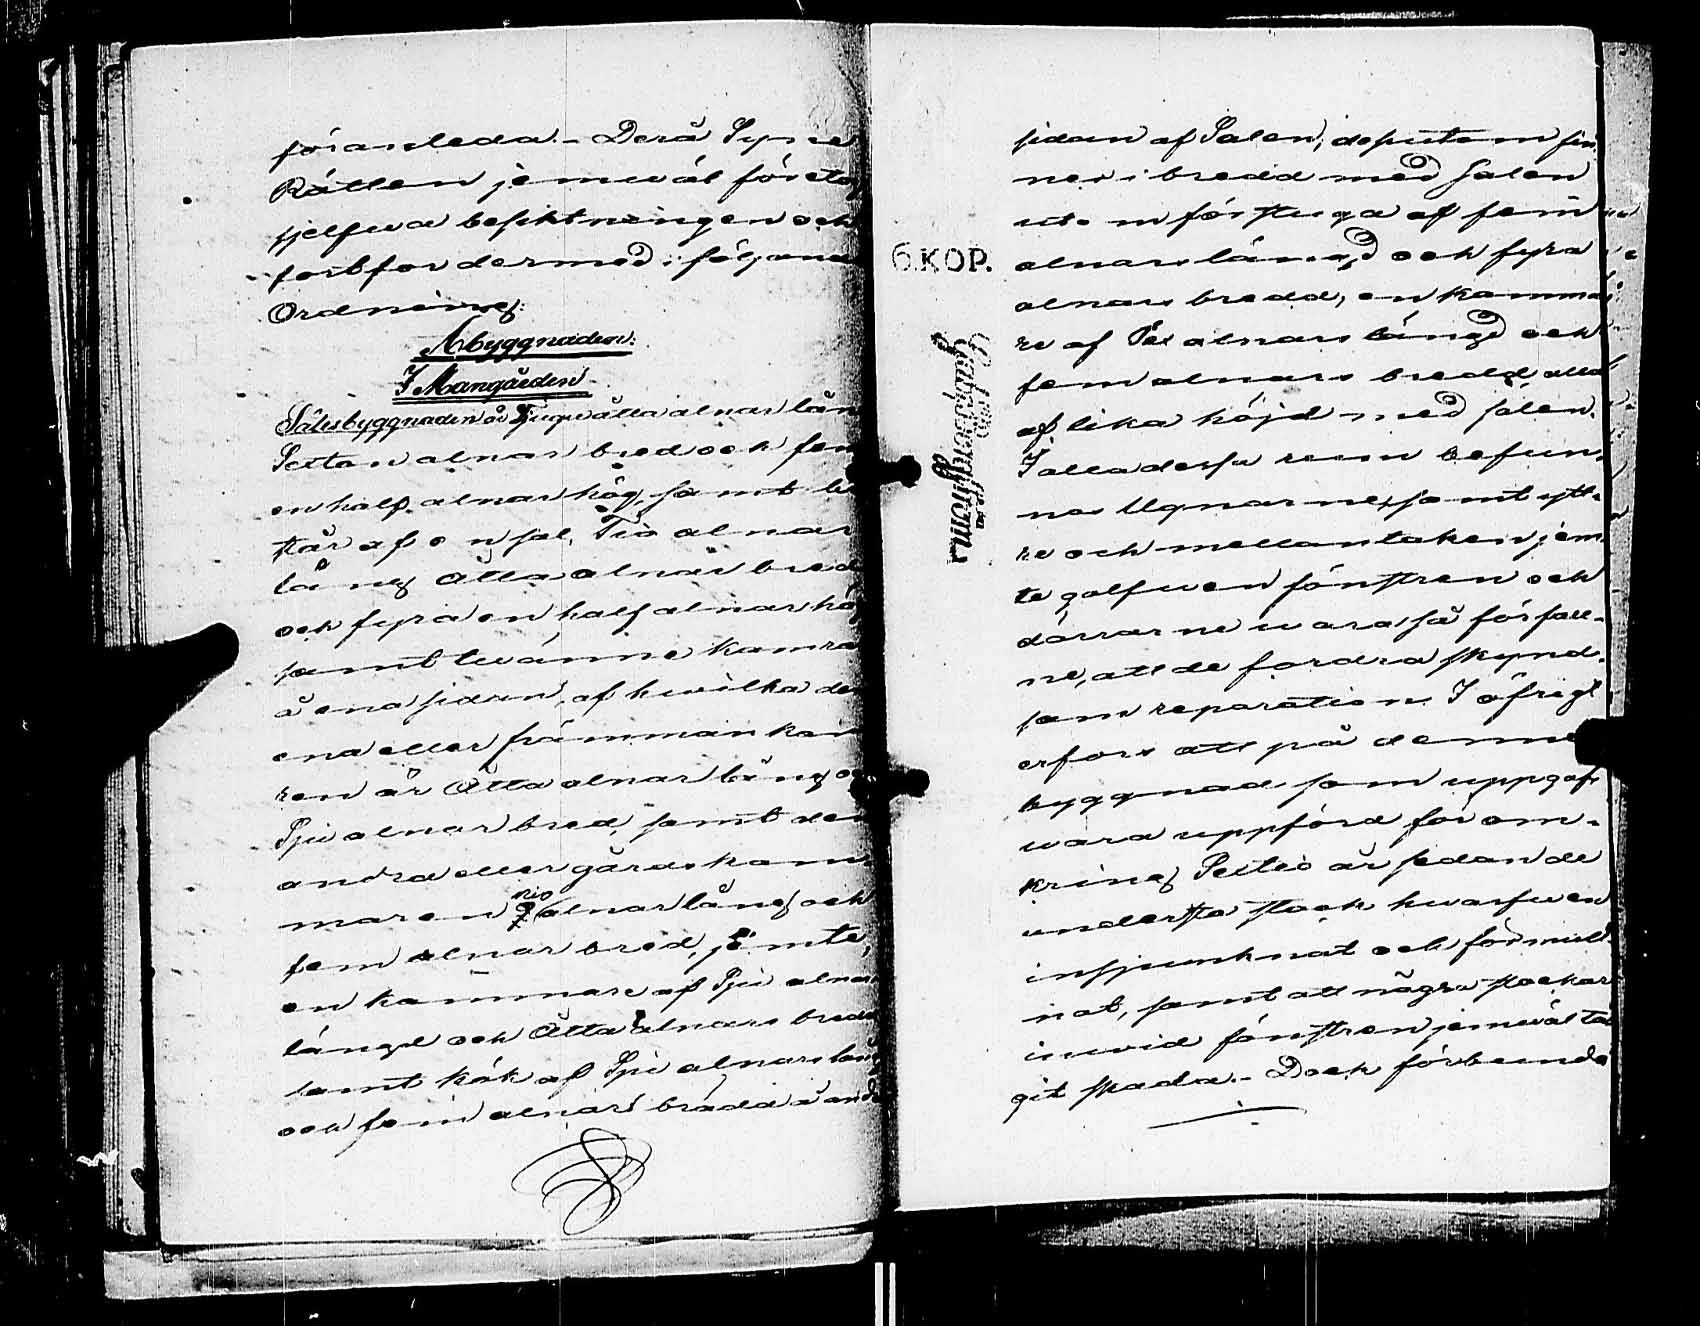 föranleda. - Derå Syne
Rätten jemwäl företog
sjelfwa besiktningen och
fortfor dermed i följande
Ordning:
Åbyggnaden.
I Mangården.
Sätesbyggnaden är Tjuguåtta alnar lån
Sexton alnar bred och fem
en half alnar hög, samt be
står af en sal, Tio alnar
lång Åtta alnar bred
och fyra en half alnar hög
samt twänne kamrar
å ena sidan, af hwilka den
ena eller främmän kam
ren är Åtta alnar lång och
Sju alnar bred, samt den
andra eller gårdskam
maren nio alnar lång och
fem alnar bred, jämte,
en kammare af Sju alnar
längd och Åtta alnars bredd
samt kök af Sju alnars läng
och fem alnars brädd å andr
sidan af Salen; desutom fin
nes i bredd med Salen
ut förstuga af fem
alnars längd och fyra
alnars bredd, en kamma
re af Sex alnars längd och
fem alnars bredd, alla
af lika höjd med salen.
I alla dessa rum befun-
nos Ugnarne, samt ytt-
re och mellantaken jem
te golfwen fönstren och
dörrarne wara så förfall-
ne, att de fordra skynd-
sam reparation. I öfrigt
erfors att på denne
byggnad som uppgafs
wara uppförd för om-
kring Sextio år sedan de
understa stock hwarfwen
insjunknat och förmult
nat, samt att några stockar
inwid fönstren jemwäl ta
git skada. - Dock förbundo
6.KOP.